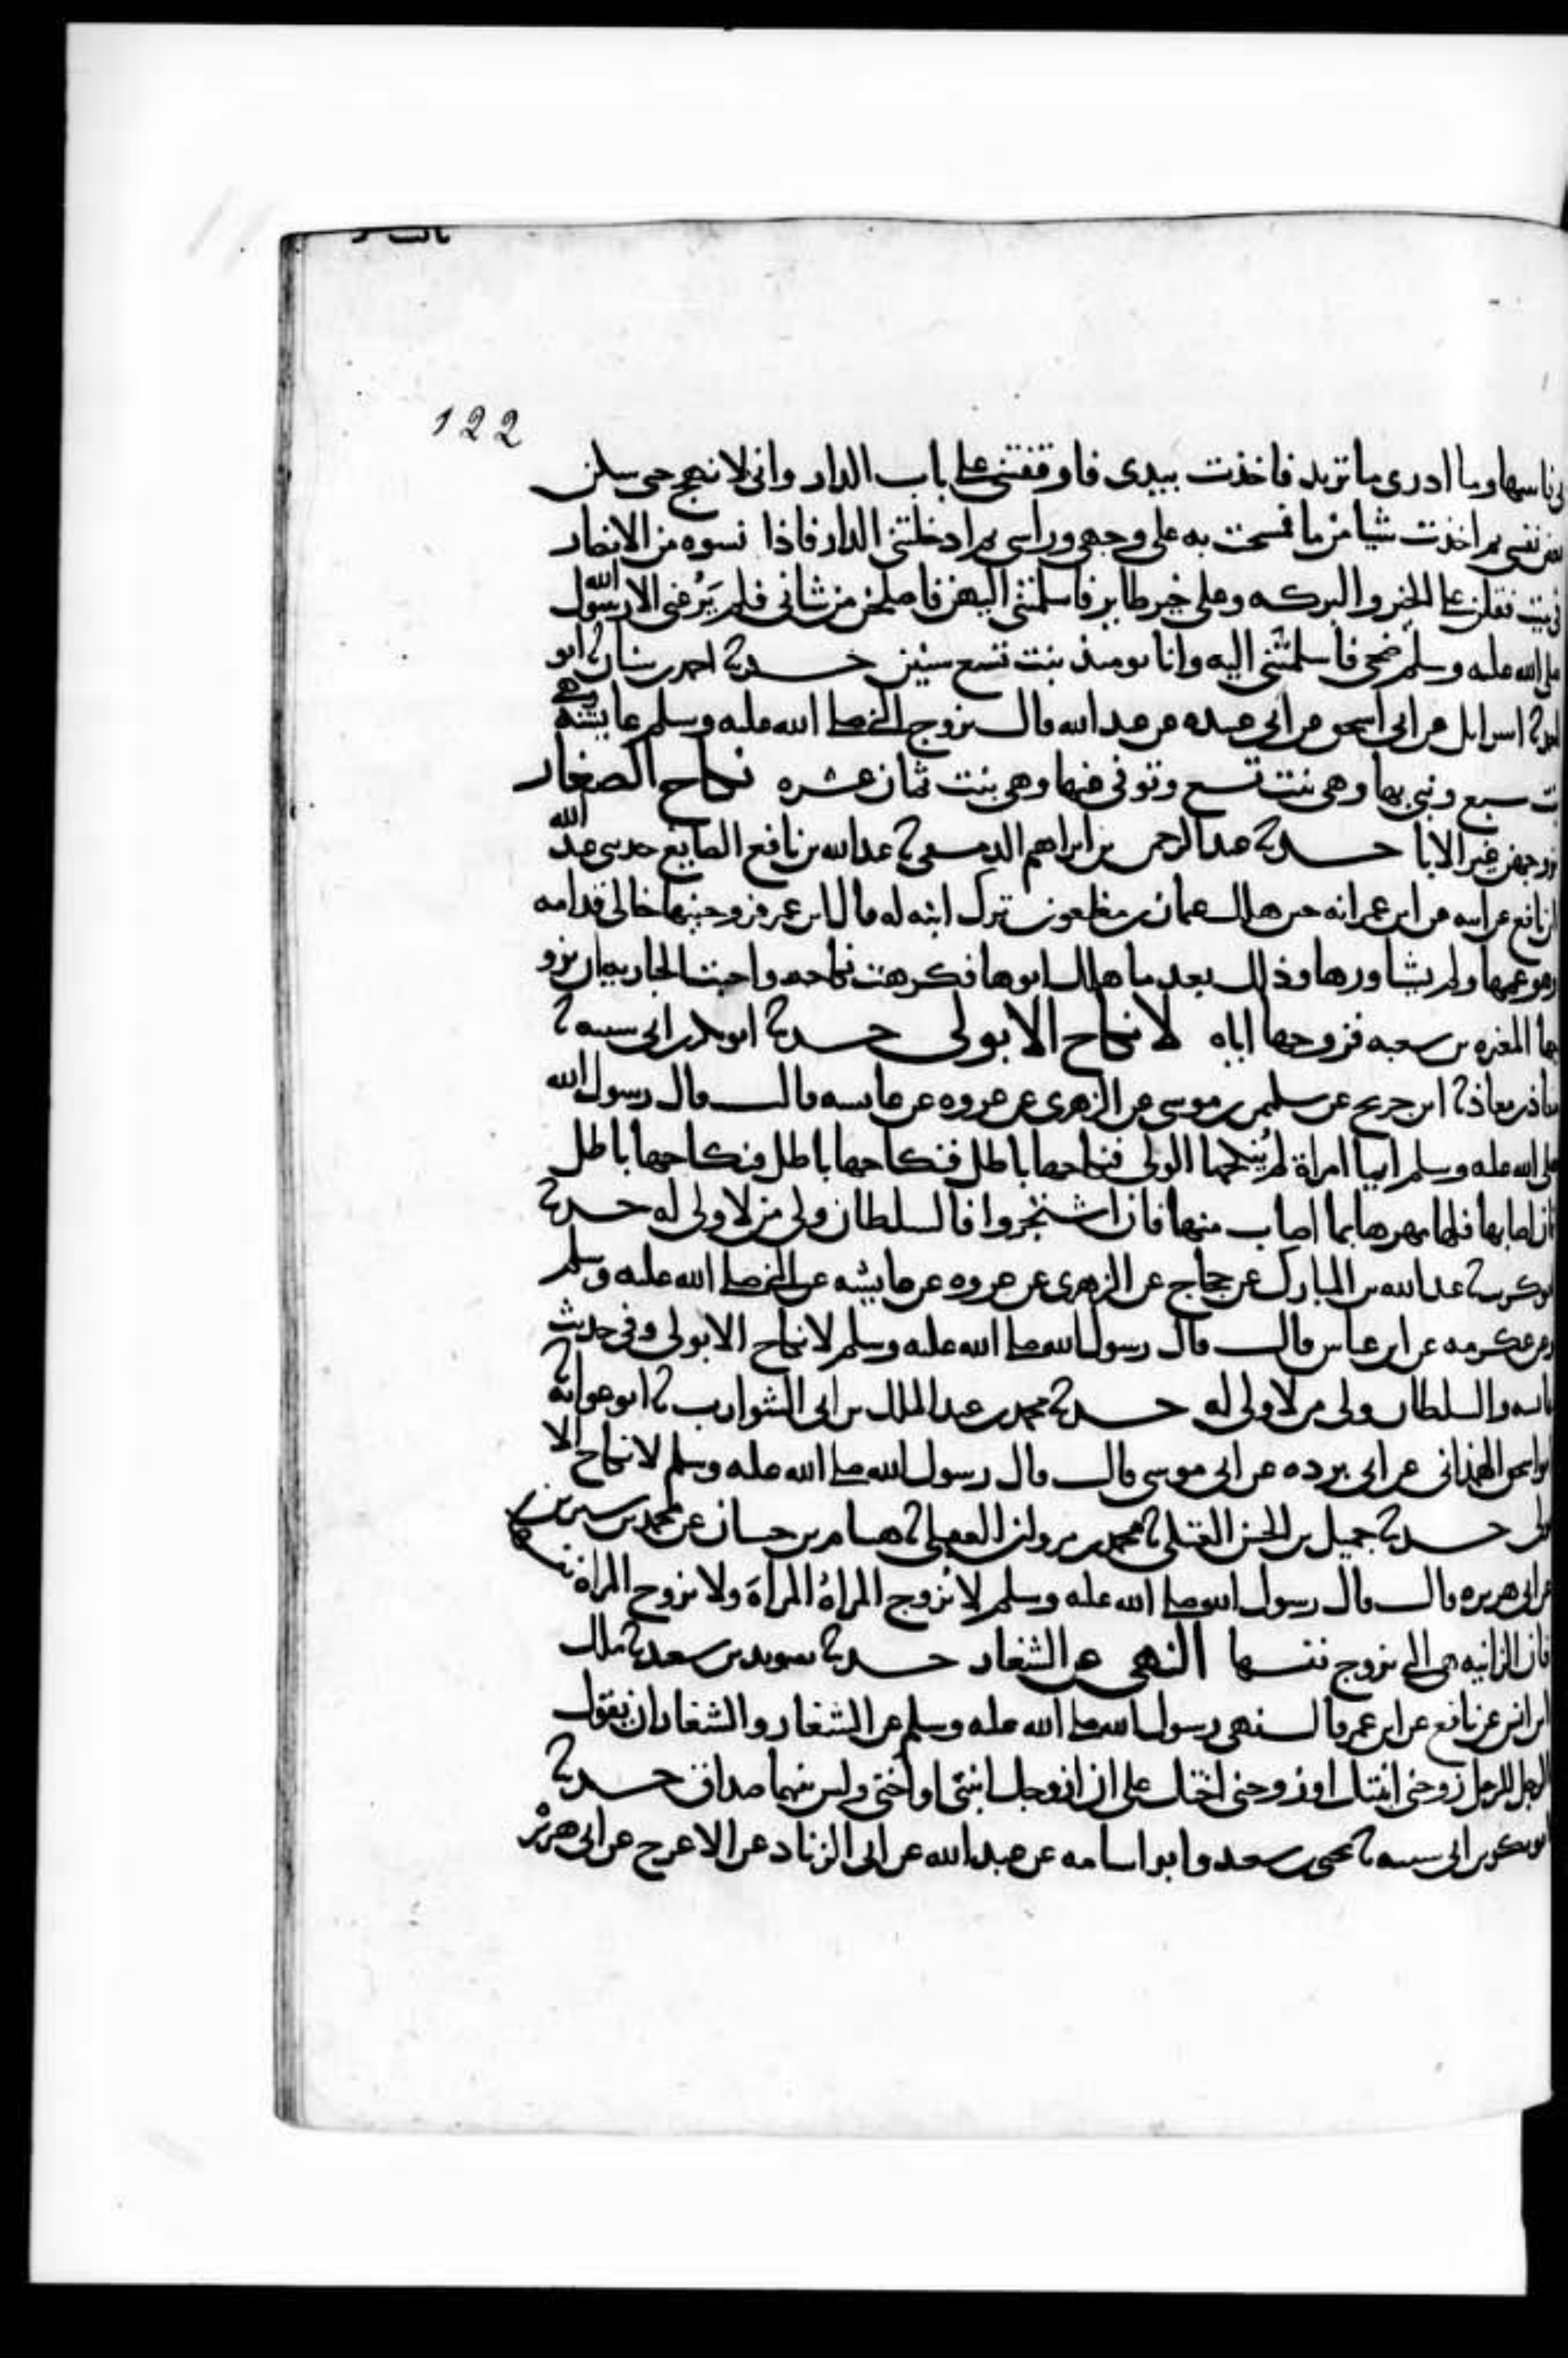 122
وما ادرى ما تريد فاخذت بيدى فاوقفتنى على باب الدار وانى لانهج حى سكن
نفسى ثم اخذت شيا من ما فمسحت به على وجهى وراسى ثم ادخلتنى الدار فاذا نسوه من الانصار
فى بيت فقلن على الخير والبركه وعلى خير طاير فاسلمتنى اليهن فاصلحن من شانى فلم يَرُعنى الا رسول الله
صلى الله عليه وسلم ضحى فاسلمتنى اليه وانا يومىذ بنت تسع سنين حدثنا احمد بن سنان ثنا ابو
احمد ثنا اسرايل عن ابى اسحق عن ابى عبيده عن عبد الله قال تزوج النبى صلى الله عليه وسلم عايشه وهى
بنت سبع وبنى بها وهى بنت تسع وتوفى عنها وهى بنت ثمان عشره نكاح الصغار
يزوجهن غير الابا حدثنا عبد الرحمن بن ابراهيم الدمشقى ثنا عبد الله بن نافع الصايغ حدثنى عبد الله
بن نافع عن ابيه عن ابن عمر انه حين هلك عثمان بن مظعون ترك ابنه له قال ابن عمر فزوجنيها خالى قدامه
وهو عمها ولم يشاورها وذلك بعد ما هلك ابوها فكرهت نكاحه واحبت الجاريه ان يزو
جها المغيره بن شعبه فزوجها اياه لا نكاح الا بولى حدثنا ابو بكر بن ابى شيبه ثنا
معاذ بن معاذ ثنا ابن جريج عن سليمن بن موسى عن الزهرى عن عروه عن عايشه قالت قال رسول الله
صلى الله عليه وسلم ايما امراة لم يُنكحها الولى فنكاحها باطل فنكاحها باطل فنكاحها باطل
فان اصابها فلها مهرها بما اصاب منها فان اشتجروا فالسلطان ولى من لا ولى له حدثنا
ابو كريب ثنا عبد الله بن المبارك عن حجاج عن الزهرى عن عروه عن عايشه عن النبى صلى الله عليه وسلم
وعن عكرمه عن ابن عباس قال قال رسول الله صلى الله عليه وسلم لا نكاح الا بولى وفى حديث
عايشه والسلطان ولى من لا ولى له حدثنا محمد بن عبد الملك بن ابى الشوارب ثنا ابو عوانه ثنا
ابو اسحق الهمدانى عن ابى برده عن ابى موسى قال قال رسول الله صلى الله عليه وسلم لا نكاح الا
بولى حدثنا جميل بن الحسن العتكى ثنا محمد بن مروان العقيلى ثنا هشام بن حسان عن محمد بن سيرين
عن ابى هريره قال قال رسول الله صلى الله عليه وسلم لا تزوج المراةُ المراةَ ولا تزوج المراه نفسها
فان الزانيه هى التى تزوج نفسها النهى عن الشغار حدثنا سويد بن سعيد ثنا ملك
بن انس عن نافع عن ابن عمر قال نهى رسول الله صلى الله عليه وسلم عن الشغار والشغار ان يقول
الرجل للرجل زوجنى ابنتك او زوجنى اختك على ان ازوجك ابنتى او اختى وليس بينهما صداق حدثنا
ابو بكر بن ابى شيبه ثنا يحيى بن سعيد وابو اسامه عن عبيد الله عن ابى الزناد عن الاعرج عن ابى هريره